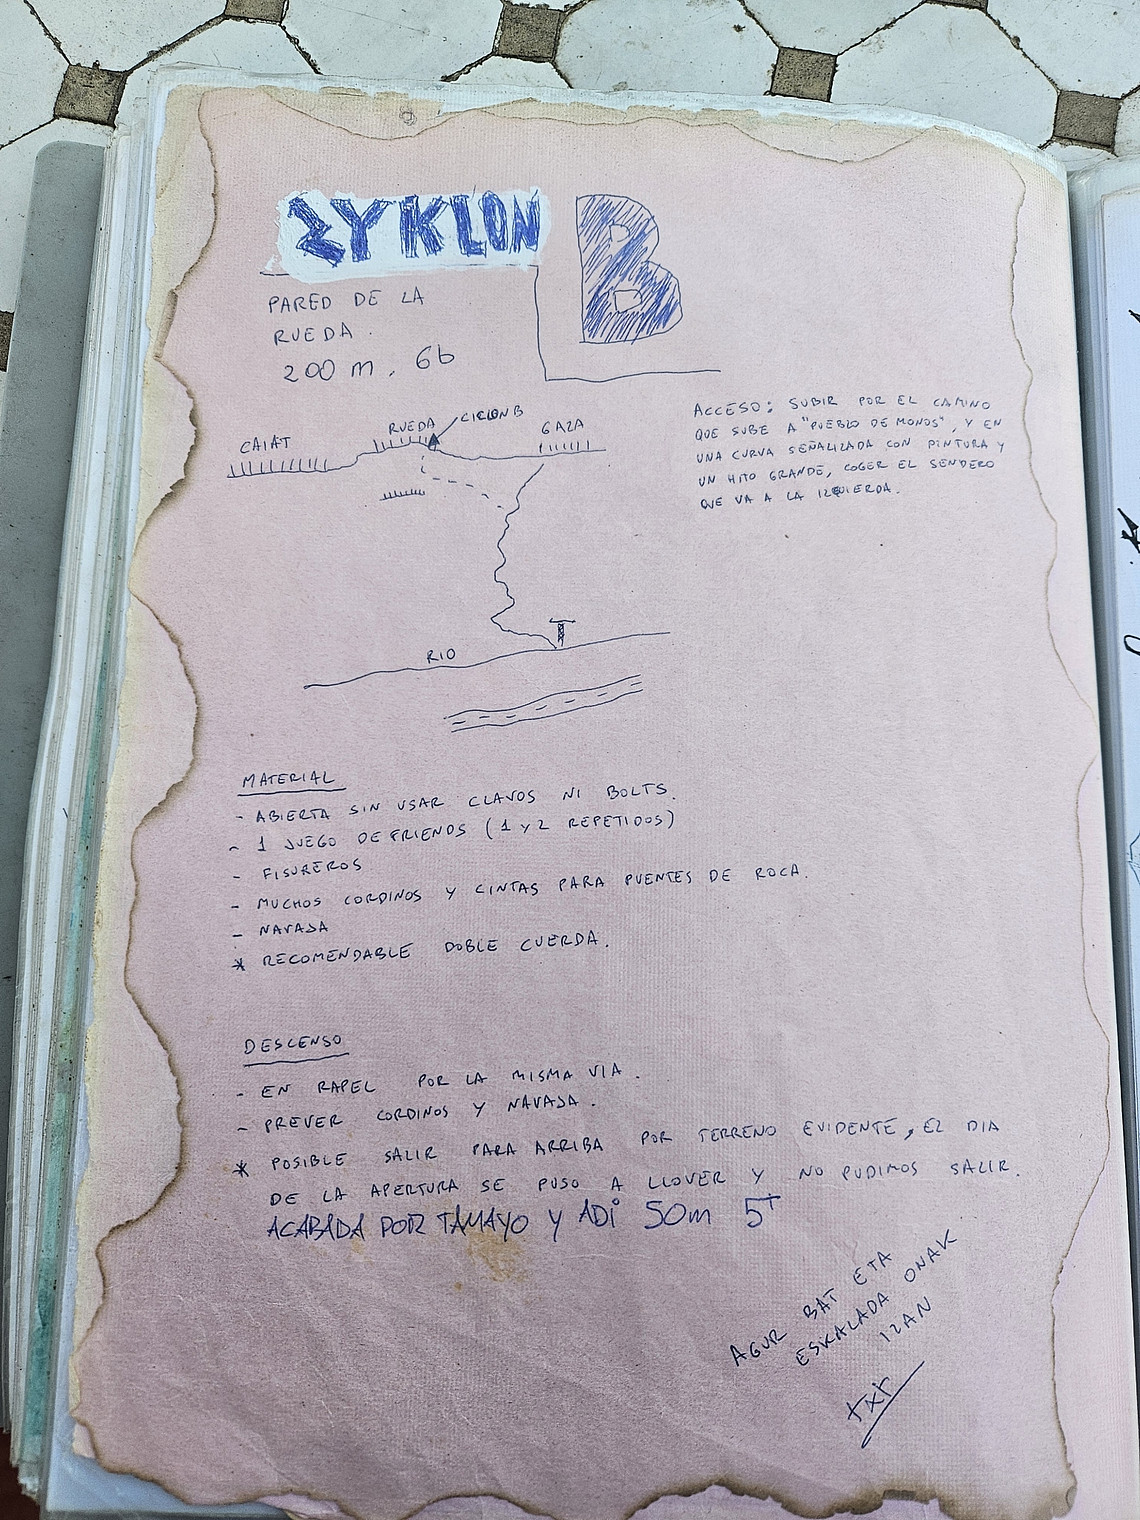 ZYKLON B
PARED DE LA
RUEDA.
200 m, 6b
CAIAT
RUEDA
CICLON B
GAZA
ACCESO: SUBIR POR EL CAMINO
QUE SUBE A "PUEBLO DE MONOS", Y EN
UNA CURVA SEÑALIZADA CON PINTURA Y
UN HITO GRANDE, COGER EL SENDERO
QUE VA A LA IZQUIERDA.
RIO
MATERIAL
- ABIERTA SIN USAR CLAVOS NI BOLTS.
- 1 JUEGO DE FRIENDS (1 Y 2 REPETIDOS)
- FISUREROS
- MUCHOS CORDINOS Y CINTAS PARA PUENTES DE ROCA.
- NAVAJA
* RECOMENDABLE DOBLE CUERDA.
DESCENSO
- EN RAPEL POR LA MISMA VIA.
- PREVER CORDINOS Y NAVAJA.
* POSIBLE SALIR PARA ARRIBA POR TERRENO EVIDENTE, EL DIA
DE LA APERTURA SE PUSO A LLOVER Y NO PUDIMOS SALIR.
ACABADA POR TAMAYO Y ADI 50m 5+
AGUR BAT ETA
ESKALADA ONAK
IZAN
txt